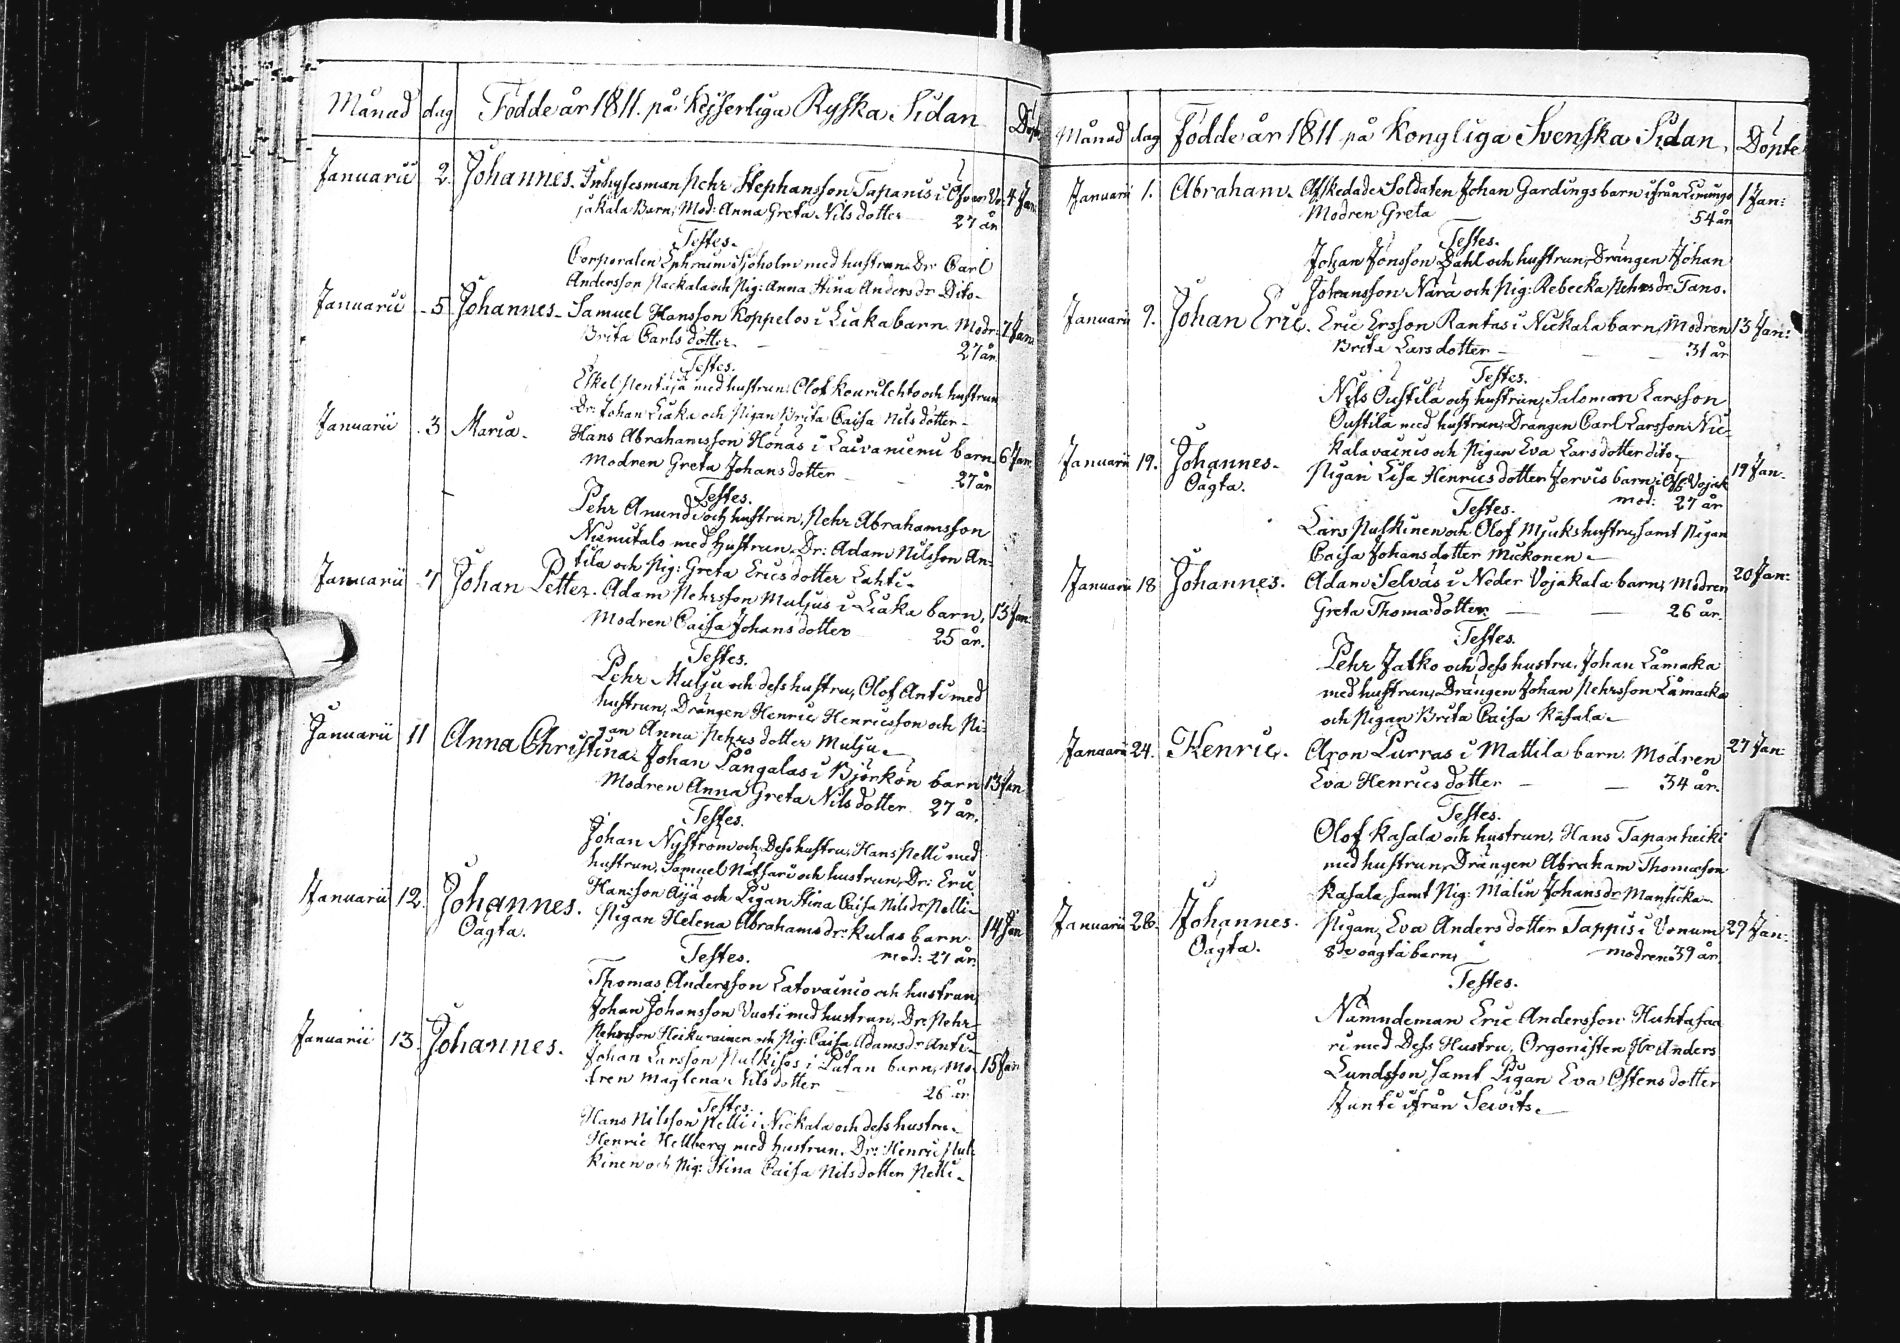 Månad dag Födde år 1811. på Keyserliga Ryska Sidan Döpte
Januarii 2. Johannes. Inhysesman Pehr Stephansson Tapanis i Öfver Vo- 4 Jan:
jakala Barn, Mod: Anna Greta Nils dotter 27 år
Testes.
Corporalen Ephraim Sjöholm med hustrun. Dr: Carl
Andersson Nackala och Pig: Anna Stina Anders dr Dito.
Januarii 5 Johannes. Samuel Hansson Koppelos i Liaka barn. Modr: 7 Jan:
Brita Carls dotter 27 år
Testes.
Eskel Pentäjä med hustrun: Olof Keurilehto och hustrun
Dr: Johan Liaka och Pigan Brita Caisa Nils dotter
Januarii 3 Maria. Hans Abrahamsson Honas i Laivaniemi barn. 6 Jan:
Modren Greta Johans dotter 27 år
Testes.
Pehr Anundi och hustrun, Pehr Abrahamsson
Niemitalo med hustrun. Dr: Adam Nilsson An-
tila och Pig: Greta Erics dotter Lahti.
Januarii 7 Johan Petter. Adam Pehrsson Muljus i Liaka barn, 13 Jan:
Modren Caisa Johans dotter 25 år.
Testes.
Pehr Mulju och dess hustru, Olof Anti med
hustrun, Drängen Henric Henricsson och Pi-
gan Anna Pehrs dotter Mulju.
Januarii 11 Anna Christina. Johan Pångalas i Björkön barn 13 Jan
Modren Anna Greta Nils dotter 27 år.
Testes.
Johan Nyström och Dess hustru, Hans Pelli med
hustrun, Samuel Natsari och hustrun, Dr: Eric
Hansson Äijä och Pigan Stina Caisa Nils dr Pelli
Januarii 12. Johannes. Pigan Helena Abrahams dr: Kulas barn 14 Jan
Oägta. mod: 27 år.
Testes.
Thomas Andersson Latovainio och hustrun
Johan Johansson Vuoti med hustrun, Dr: Pehr
Pehrsson Heikurainen och Pig: Caisa Adams dr Anti
Januarii 13. Johannes. Johan Larsson Pulkisos i Putan barn, Mo- 15 Jan
dren Maglena Nils dotter 26 år
Testes.
Hans Nilsson Pelli i Nickala och dess hustru
Henric Hellberg med hustrun. Dr: Henric Pul-
kinen och Pig: Stina Caisa Nils dotter Pelli.
Månad dag Födde år 1811 på Kongliga Svenska Sidan. Döpte
Januarii 1. Abraham. Afskedade Soldaten Johan Gardings barn ifrån 1 Jan:
Modren Greta 54 år
Testes.
Johan Jönsson Dahl och hustrun, Drängen Johan
Johansson Nara och Pig: Rebecka Pehrs dr Tano.
Januarii 9. Johan Eric. Eric Ersson Rantas i Nickala barn, Modren 13 Jan:
Brita Lars dotter 31 år
Testes.
Nils Oustila och hustrun, Salomon Larsson
Oustila med hustrun, Drängen Carl Larsson Nic-
kalavainio och Pigan Eva Lars dotter dito.
Januarii 19. Johannes. Pigan Lisa Henrics dotter Jervis barn i Öfv. Vojak 19 Jan.
Oägta. mod: 27 år
Testes.
Lars Puskinen och Olof Mjuks hustru, samt Pigan
Caisa Johans dotter Mickonen.
Januarii 18 Johannes. Adam Selväs i Neder Vojakala barn, Modren 20 Jan:
Greta Thoma dotter 26 år.
Testes.
Pehr Jatko och dess hustru. Johan Låmacka
med hustrun, Drängen Johan Pehrsson Låmacka
och Pigan Brita Caisa Kasala.
Januarii 24. Henric. Aron Purras i Mattila barn. Modren 27 Jan
Eva Henrics dotter 34 år.
Testes.
Olof Kasala och hustrun, Hans Tapanheiki
med hustrun, Drängen Abraham Thomasson
Kasala, samt Pig: Malin Johans dr Manticka
Januarii 28. Johannes. Pigan, Eva Anders dotter Tappis i Vonum 29 Jan:
Oägta. 8de oägta barn, modren 39 år.
Testes.
Nämndeman Eric Andersson Huhtasaa-
ri med Dess Hustru, Orgonisten Hr Anders
Lundsson samt Pigan Eva Ostens dotter
Junti ifrån Seivits.